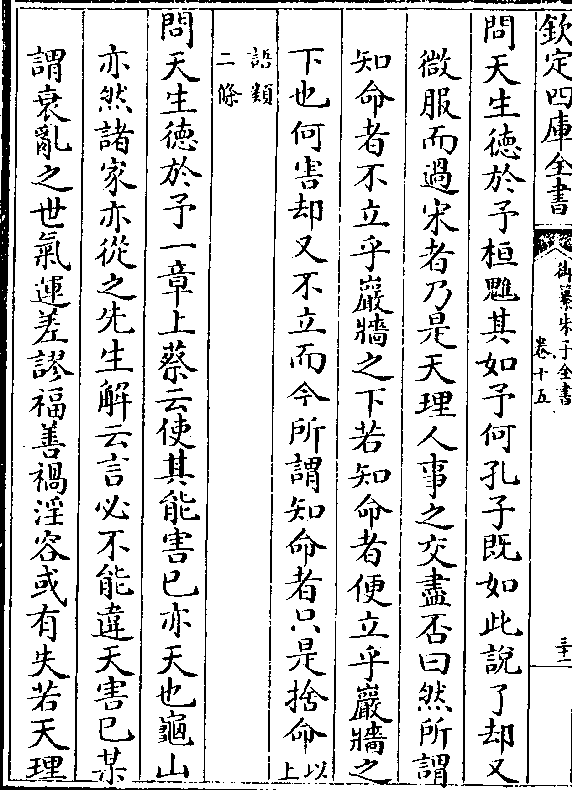 欽定四庫全書
御纂朱子全書
卷十五
三十二
問天生德於予桓魋其如予何孔子既如此說了却又
微服而過宋者乃是天理人事之交盡否曰然所謂
知命者不立乎巖牆之下若知命者便立乎巖牆之
下也何害却又不立而今所謂知命者只是捨命以上
語類
二條
問天生德於予一章上蔡云使其能害已亦天也龜山
亦然諸家亦從之先生解云言必不能違天害已某
謂衰亂之世氣運差謬福善禍淫容或有失若天理